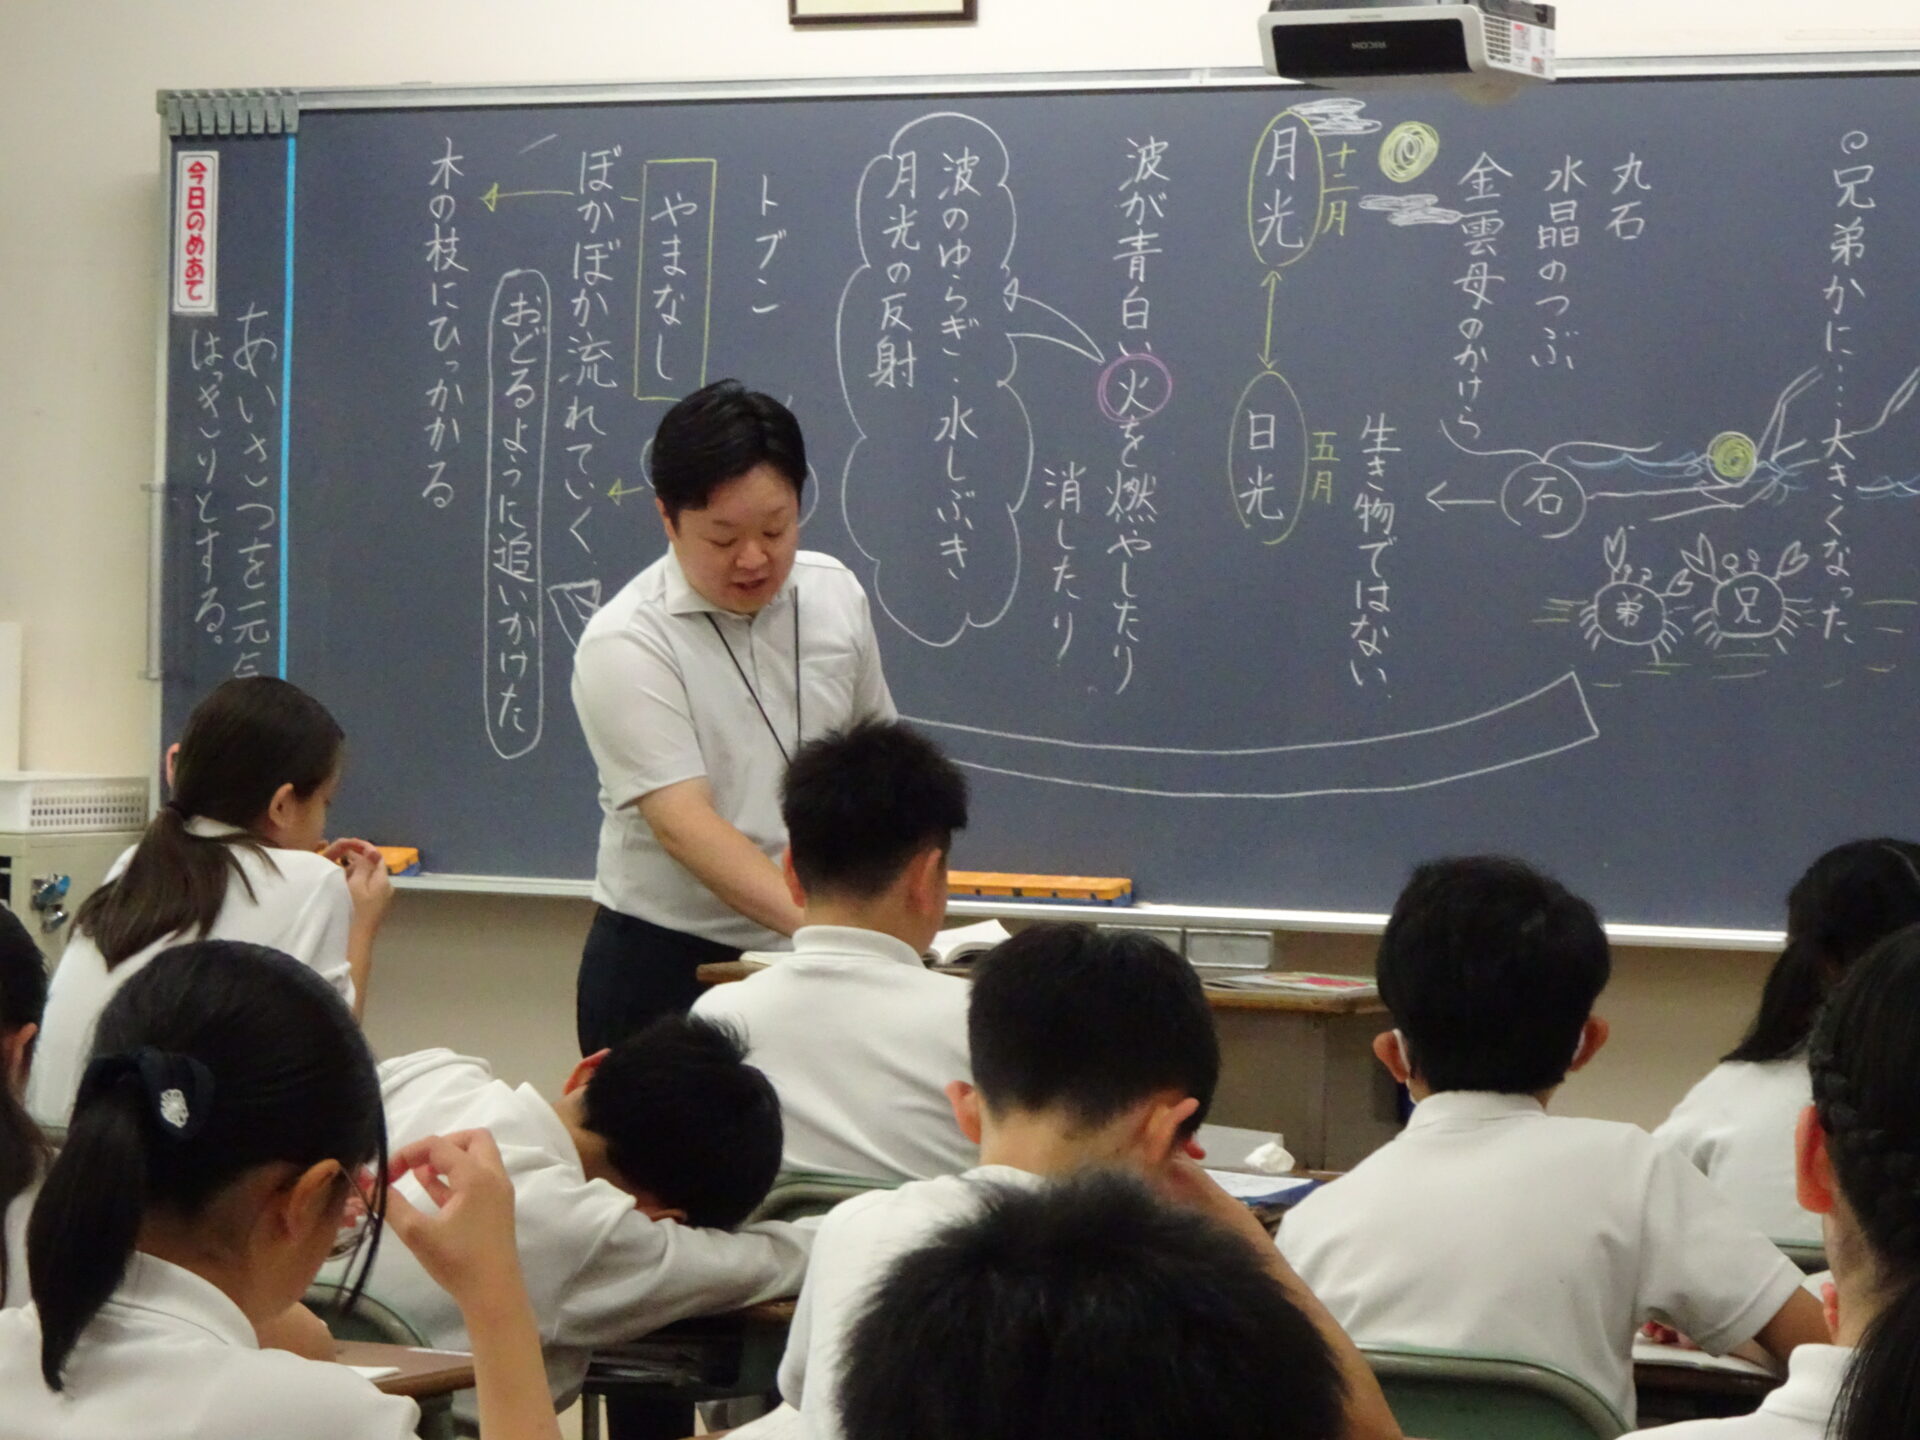 兄弟かに…大きくなった
丸石
水晶のつぶ
金雲母のかけら
石
兄
弟
生き物ではない
十二月
月光
五月
日光
波が青白い火を燃やしたり
消したり
波のゆらぎ・水しぶき
月光の反射
トブン
やまなし
ぽかぽか流れていく
おどるように追いかけた
木の枝にひっかかる
今日のめあて
あいさつを元気
はっきりとする。
RICOH